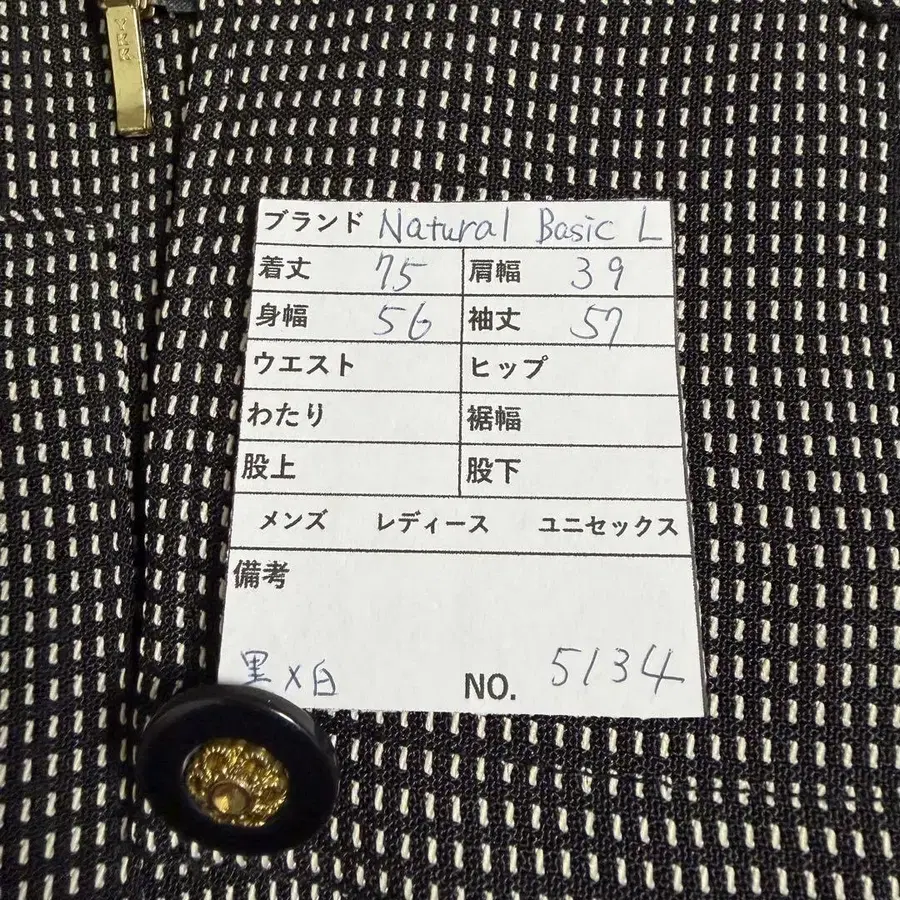 ブランド Natural Basic L
着丈 75 肩幅 39
身幅 56 袖丈 57
ウエスト ヒップ
わたり 裾幅
股上 股下
メンズ レディース ユニセックス
備考
黒×白 NO. 5134